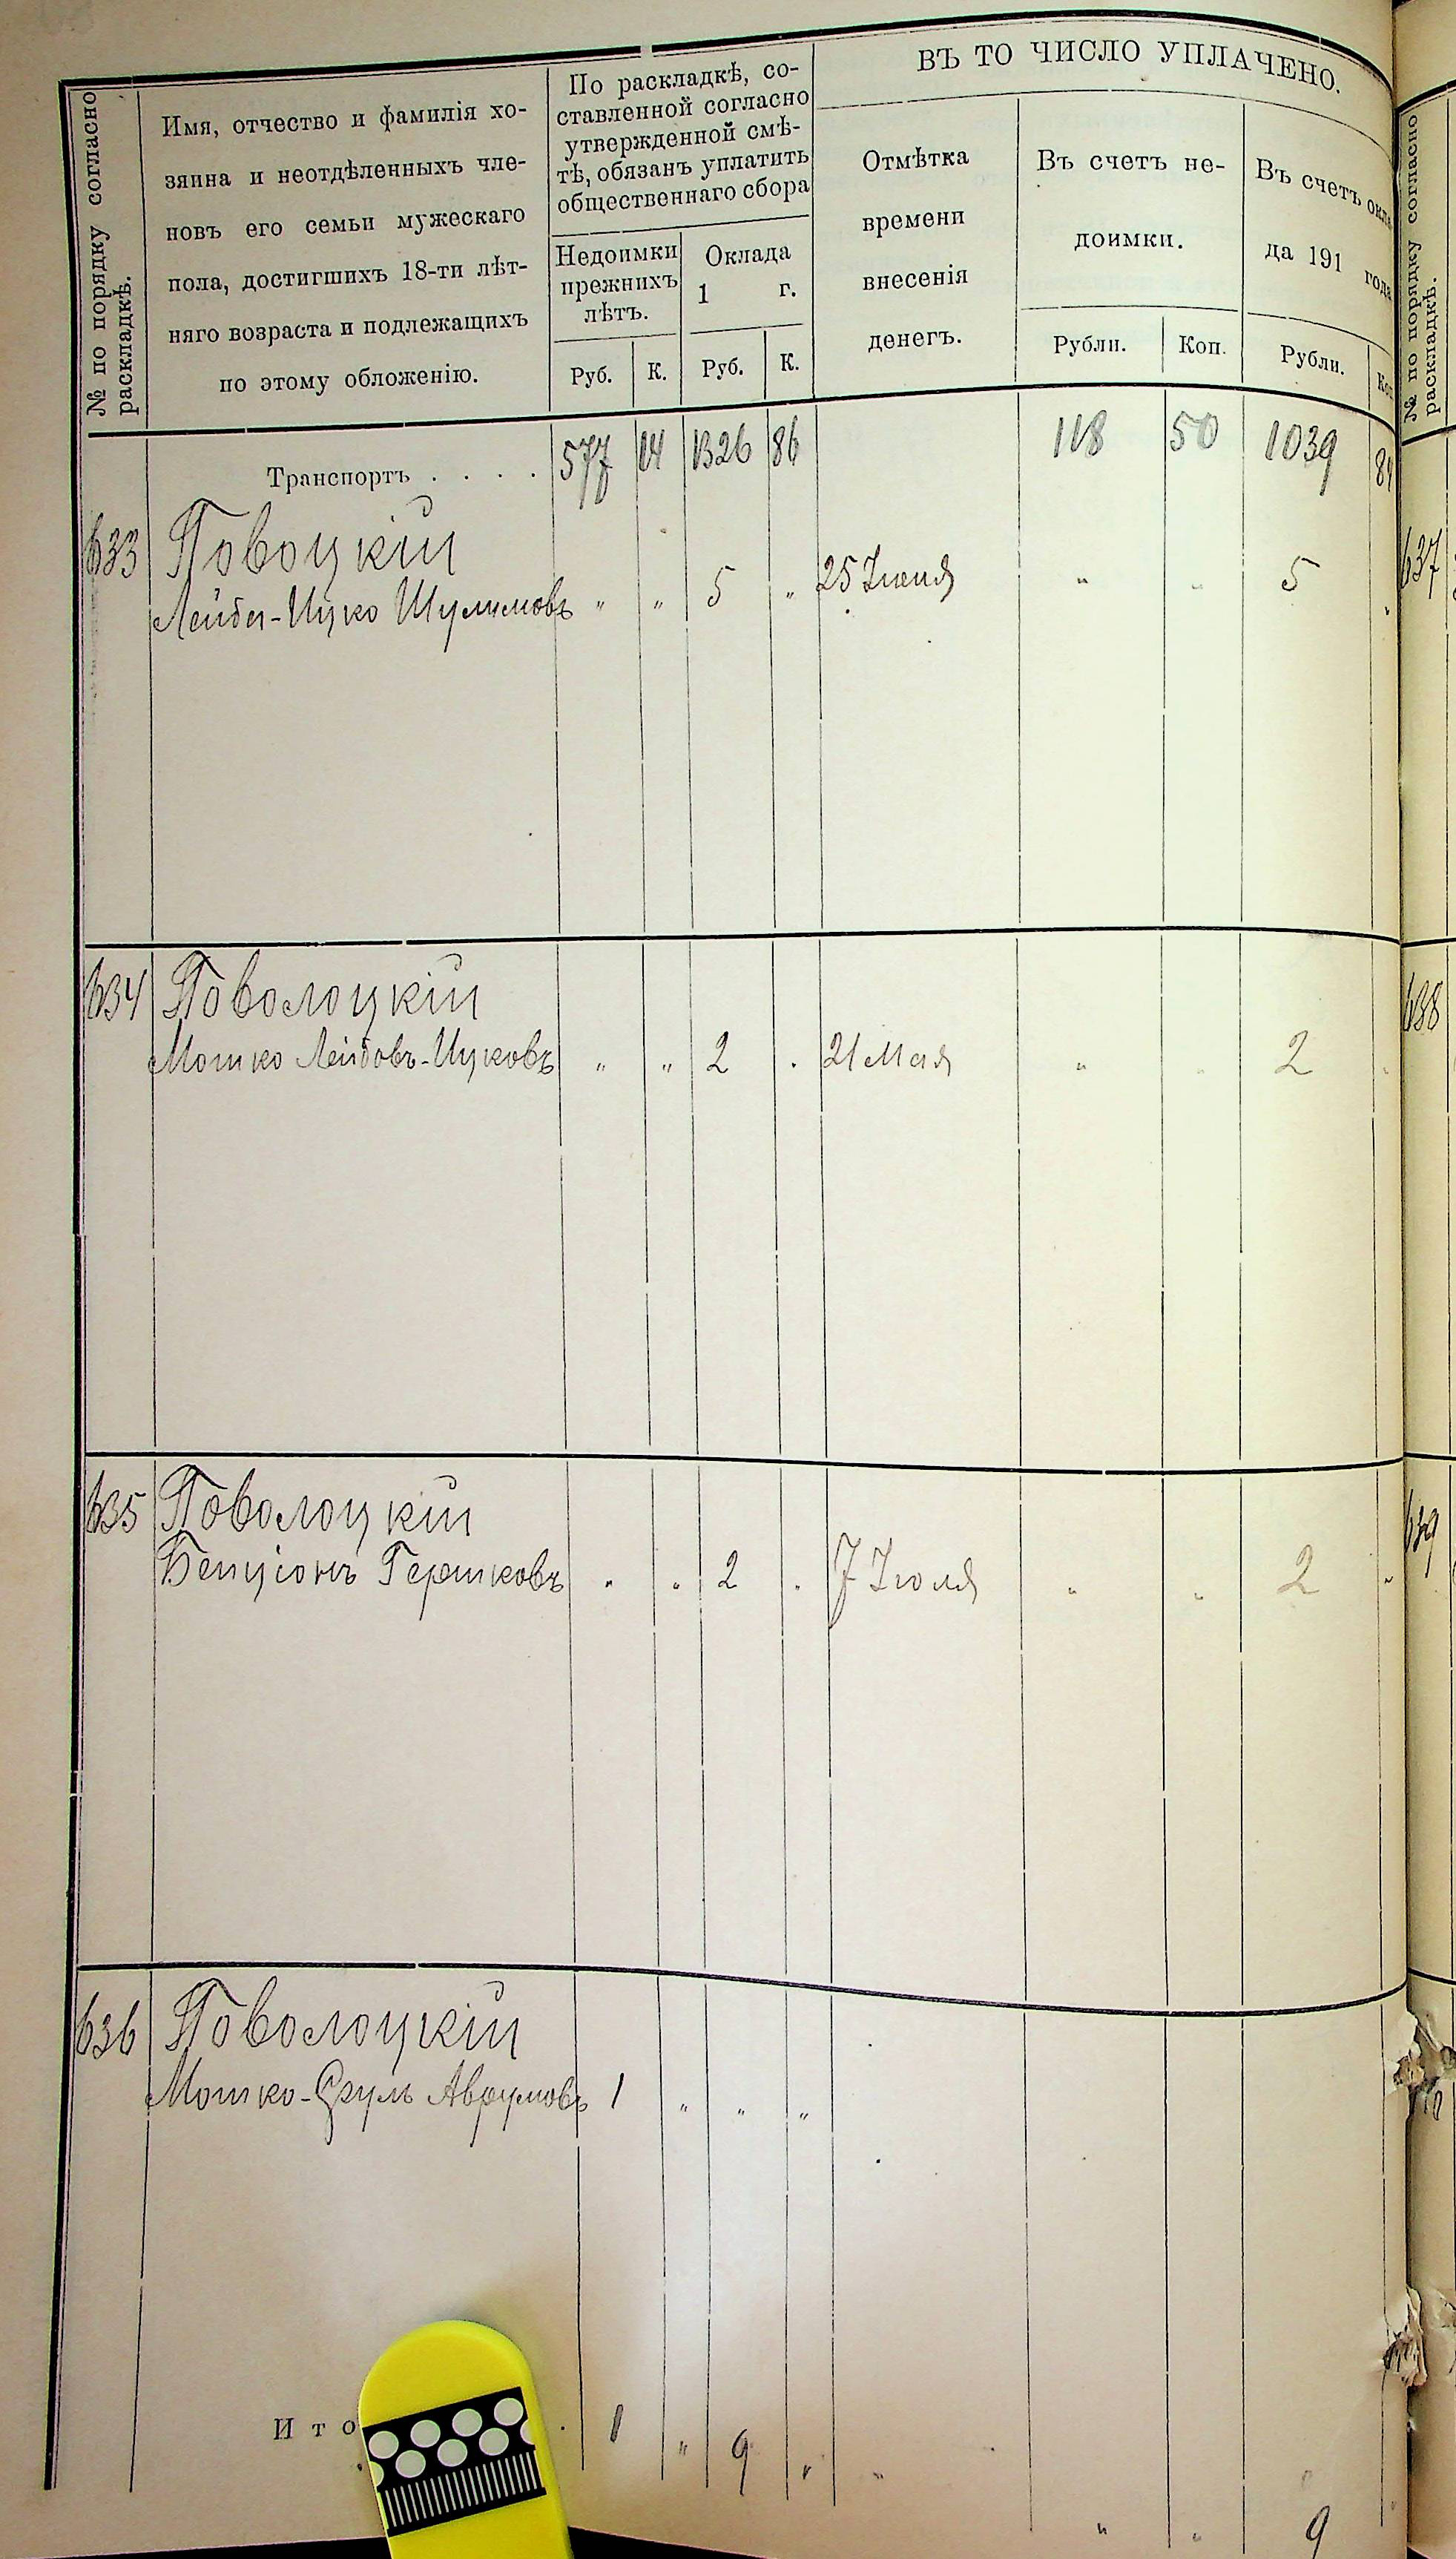 № по порядку согласно
раскладкѣ.
Имя, отчество и фамилія хо-
зяина и неотдѣленныхъ чле-
новъ его семьи мужескаго
пола, достигшихъ 18-ти лѣт-
няго возраста и подлежащихъ
по этому обложенію.
По раскладкѣ, со-
ставленной согласно
утвержденной смѣ-
тѣ, обязанъ уплатить
общественнаго сбора
Недоимки
прежнихъ
лѣтъ.
Оклада
1 г.
Руб. К. Руб. К.
ВЪ ТО ЧИСЛО УПЛАЧЕНО.
Отмѣтка
времени
внесенія
денегъ.
Въ счетъ не-
доимки.
Рубли. Коп.
Въ счетъ окла
да 191 года
Рубли. Коп
Транспортъ . . . . 577 14 1326 86 118 50 1039 84
633 Повоцкій
Лейба-Ицко Шулимовъ " " 5 " 25 Іюня " " 5 "
634 Поволоцкій
Мошко Лейбовъ-Ицковъ " " 2 " 21 Мая " " 2 "
635 Поволоцкій
Бенціонъ Гершковъ " " 2 " 7 Іюля " " 2 "
636 Поволоцкій
Мошко-Сруль Аврумовъ 1 " " "
Ито . 1 " 9 " "
" " 9
№ по порядку согласно
раскладкѣ.
637
638
639